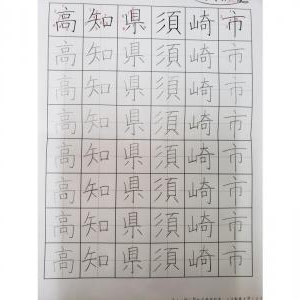 高知県須崎市
高知県須崎市
高知県須崎市
高知県須崎市
高知県須崎市
高知県須崎市
高知県須崎市
高知県須崎市